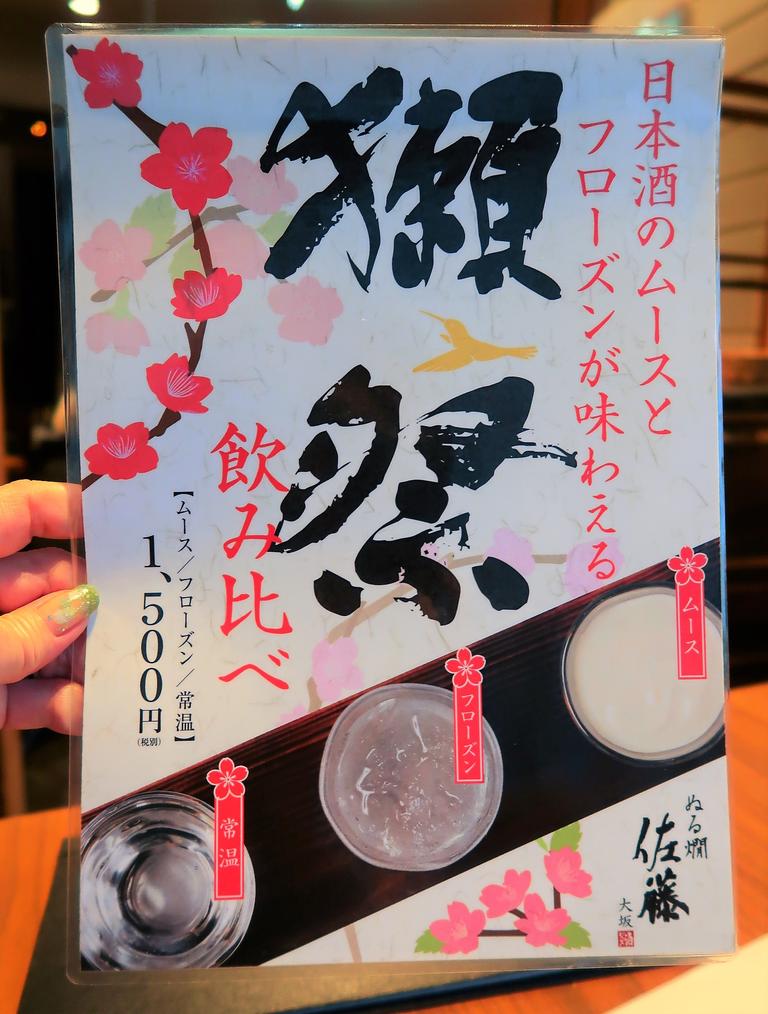 日本酒のムースと
フローズンが味わえる
獺祭
飲み比べ
【ムース/フローズン/常温】
1,500円
(税別)
ムース
フローズン
常温
ぬる燗
佐藤
大坂